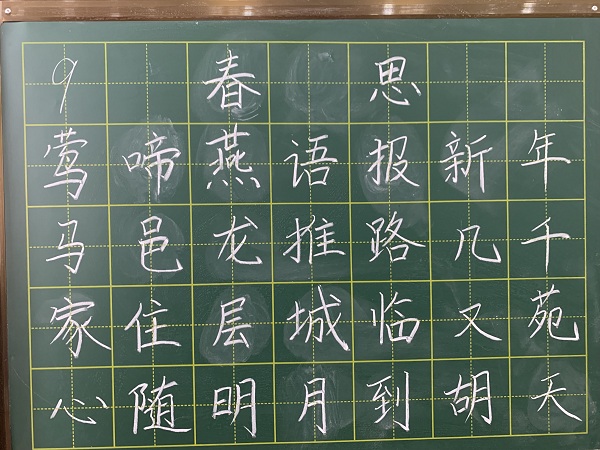 9 春 思
莺啼燕语报新年
马邑龙推路几千
家住层城临又苑
心随明月到胡天